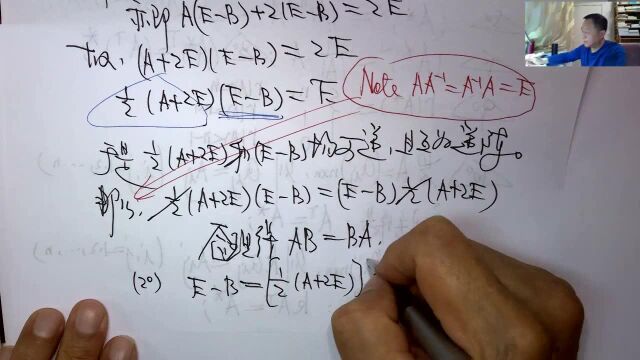 亦即 A(E-B)+2(E-B)=2E
故, (A+2E)(E-B)=2E
½(A+2E)(E-B)=E
Note AA⁻¹=A⁻¹A=E
于是 ½(A+2E)和(E-B)均可逆,且互为逆阵。
½(A+2E)(E-B)=(E-B)½(A+2E)
AB=BA.
(2°) E-B=[½(A+2E)]